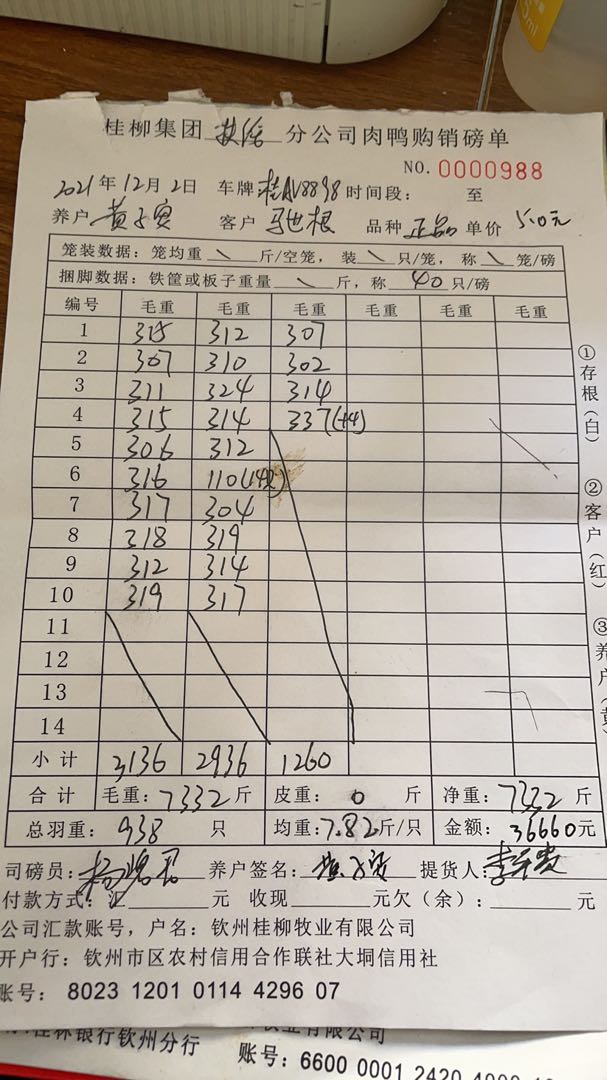 桂柳集团 分公司肉鸭购销磅单
NO. 0000988
2021年12月2日 车牌桂AV8898 时间段： 至
养户 黄子寅 客户 马世根 品种 正品 单价 5.0元
笼装数据：笼均重 \ 斤/空笼，装 \ 只/笼，称 \ 笼/磅
捆脚数据：铁筐或板子重量 \ 斤，称 40 只/磅
编号 毛重 毛重 毛重 毛重 毛重 毛重
1 315 312 307
2 307 310 302
3 311 324 314
4 315 314 337(+4)
5 306 312
6 316 110(14只)
7 317 304
8 318 319
9 312 314
10 319 317
11
12
13
14
小计 3136 2936 1260
合计 毛重：7332斤 皮重：0 斤 净重：7332斤
总羽重：938 只 均重：7.82斤/只 金额：36660元
司磅员： 养户签名： 提货人：
付款方式：汇 元 收现 元欠（余）： 元
公司汇款账号，户名：钦州桂柳牧业有限公司
开户行：钦州市区农村信用合作联社大垌信用社
账号：8023 1201 0114 4296 07
①存根（白）
②客户（红）
③养户（黄
桂林银行钦州分行
业有限公司
账号：6600 0001 2420